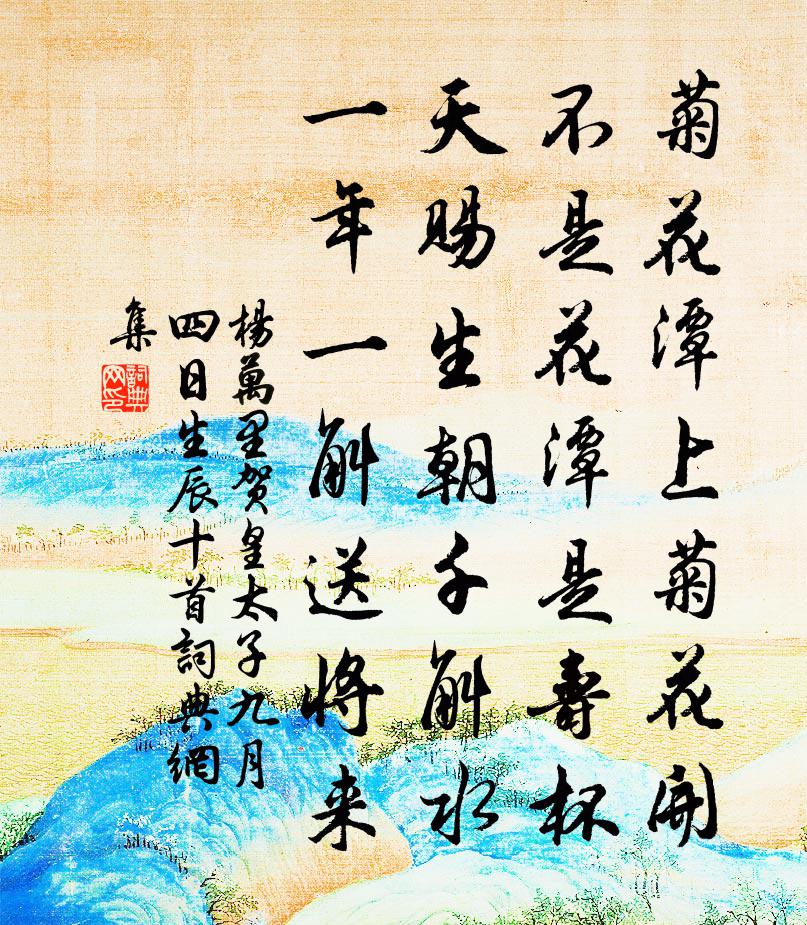 菊花潭上菊花開
不是花潭是壽杯
天賜生朝千斛水
一年一斛送將来
楊萬里賀皇太子九月
四日生辰十首詞典網
集
詞典
网印